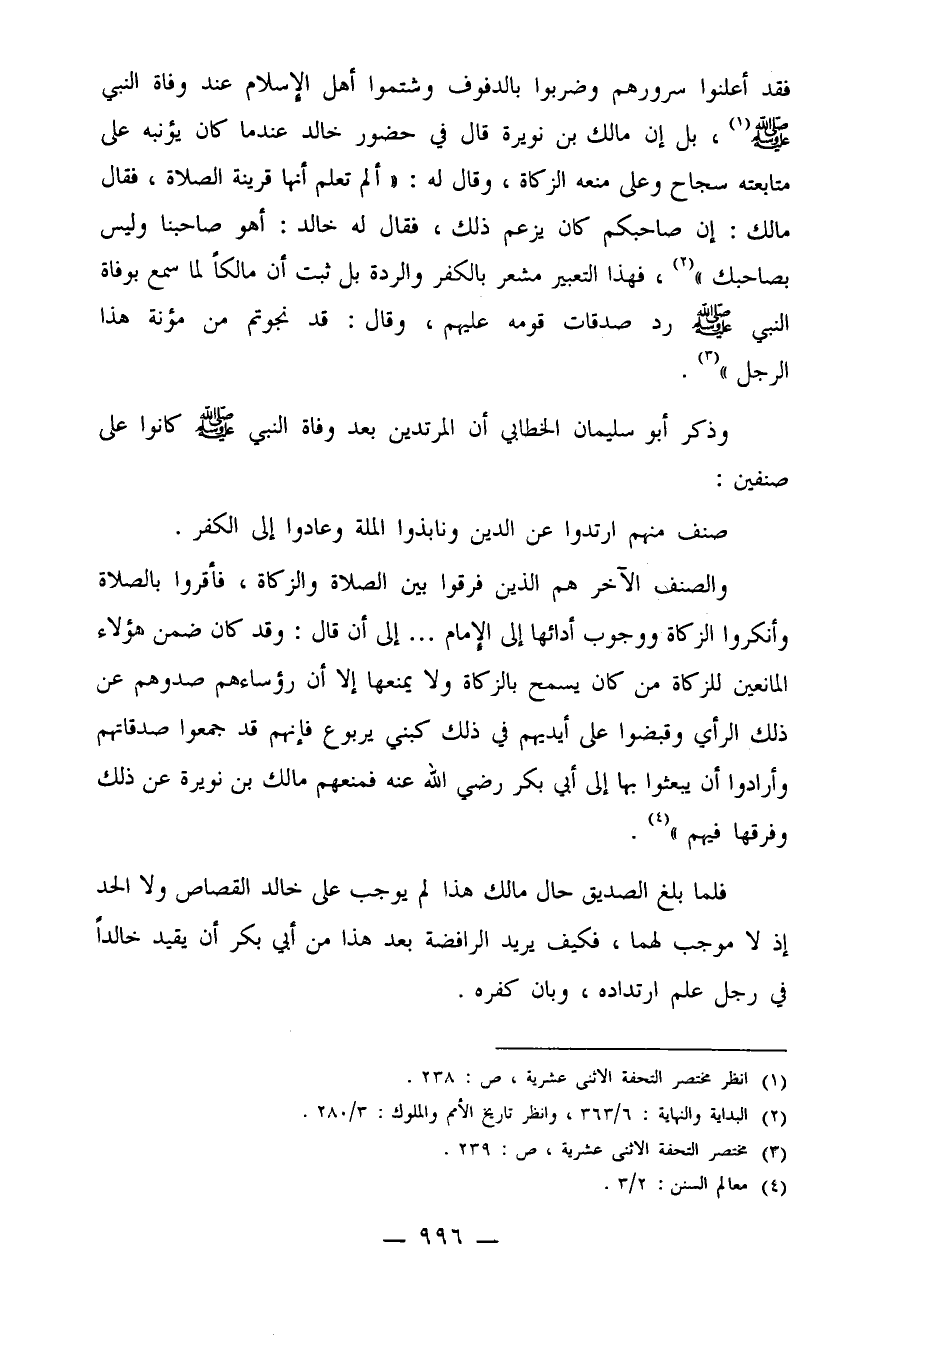 فقد أعلنوا سرورهم وضربوا بالدفوف وشتموا أهل الإسلام عند وفاة النبي
ﷺ(١) ، بل إن مالك بن نويرة قال في حضور خالد عندما كان يؤنبه على
متابعته سجاح وعلى منعه الزكاة ، وقال له : « ألم تعلم أنها قرينة الصلاة ، فقال
مالك : إن صاحبكم كان يزعم ذلك ، فقال له خالد : أهو صاحبنا وليس
بصاحبك »(٢) ، فهذا التعبير مشعر بالكفر والردة بل ثبت أن مالكاً لما سمع بوفاة
النبي ﷺ رد صدقات قومه عليهم ، وقال : قد نجوتم من مؤنة هذا
الرجل »(٣) .
وذكر أبو سليمان الخطابي أن المرتدين بعد وفاة النبي ﷺ كانوا على
صنفين :
صنف منهم ارتدوا عن الدين ونابذوا الملة وعادوا إلى الكفر .
والصنف الآخر هم الذين فرقوا بين الصلاة والزكاة ، فأقروا بالصلاة
وأنكروا الزكاة ووجوب أدائها إلى الإمام ... إلى أن قال : وقد كان ضمن هؤلاء
المانعين للزكاة من كان يسمح بالزكاة ولا يمنعها إلا أن رؤساءهم صدوهم عن
ذلك الرأي وقبضوا على أيديهم في ذلك كبني يربوع فإنهم قد جمعوا صدقاتهم
وأرادوا أن يبعثوا بها إلى أبي بكر رضي الله عنه فمنعهم مالك بن نويرة عن ذلك
وفرقها فيهم »(٤) .
فلما بلغ الصديق حال مالك هذا لم يوجب على خالد القصاص ولا الحد
إذ لا موجب لهما ، فكيف يريد الرافضة بعد هذا من أبي بكر أن يقيد خالداً
في رجل علم ارتداده ، وبان كفره .
(١) انظر مختصر التحفة الاثنى عشرية ، ص : ٢٣٨ .
(٢) البداية والنهاية : ٣٦٣/٦ ، وانظر تاريخ الأمم والملوك : ٢٨٠/٣ .
(٣) مختصر التحفة الاثنى عشرية ، ص : ٢٣٩ .
(٤) معالم السنن : ٣/٢ .
— ٩٩٦ —